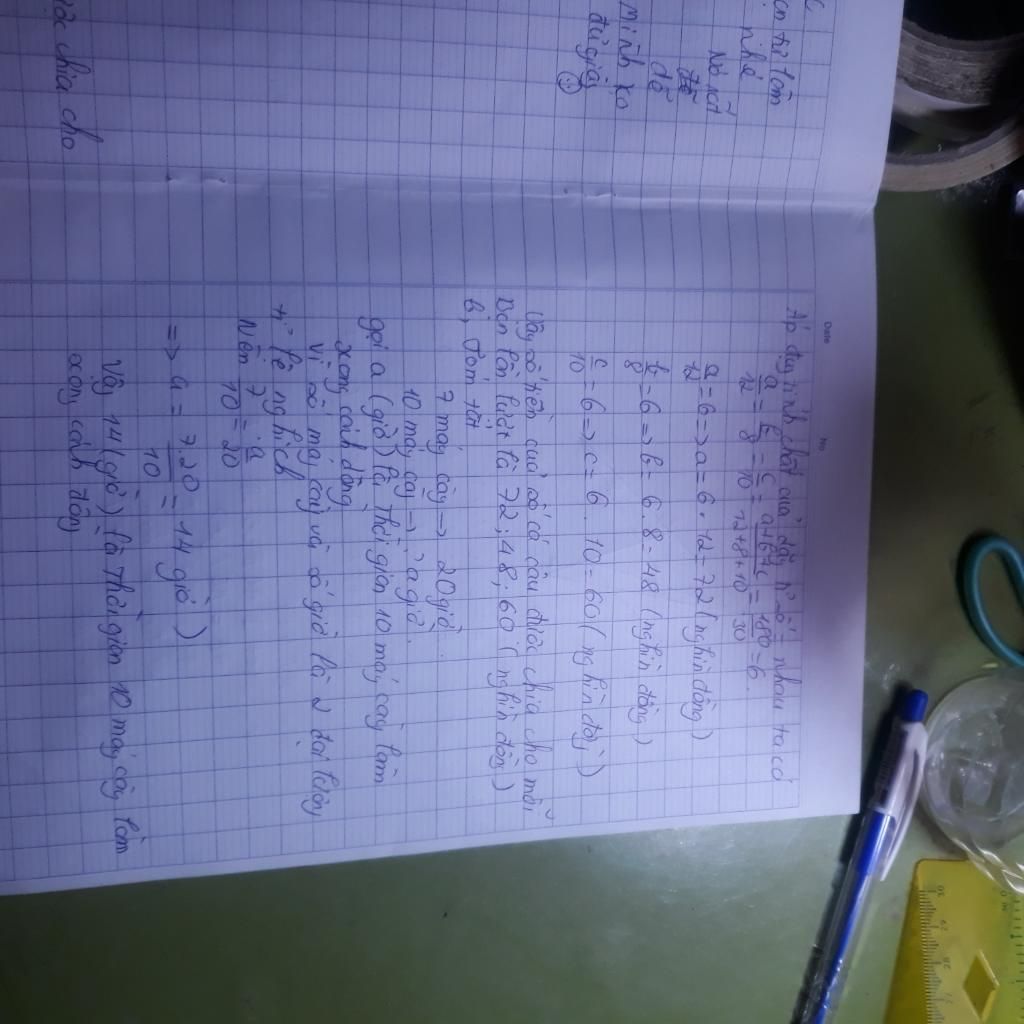 c
cn tự làm
nhé
Nó rất
dễ
Mình ko
đủ giấy
ược chia cho
Date No
Áp dụng tính chất của dãy tỉ số = nhau ta có
a/12 = b/8 = c/10 = a+b+c/12+8+10 = 180/30 = 6
a/12 = 6 => a = 6 . 12 = 72 (nghìn đồng)
b/8 = 6 => b = 6 . 8 = 48 (nghìn đồng)
c/10 = 6 => c = 6 . 10 = 60 (nghìn đồng)
Vậy số tiền của số cá câu được chia cho mỗi
bạn lần lượt là 72 ; 48 ; 60 (nghìn đồng)
b, Tóm tắt
7 máy cày -> 20 giờ
10 máy cày -> a giờ
gọi a (giờ) là thời gian 10 máy cày làm
xong cánh đồng
Vì số máy cày và số giờ là 2 đại lượng
tỉ lệ nghịch
Nên 7/10 = a/20
=> a = 7.20/10 = 14 giờ)
Vậy 14 (giờ) là thời gian 10 máy cày làm
xong cánh đồng